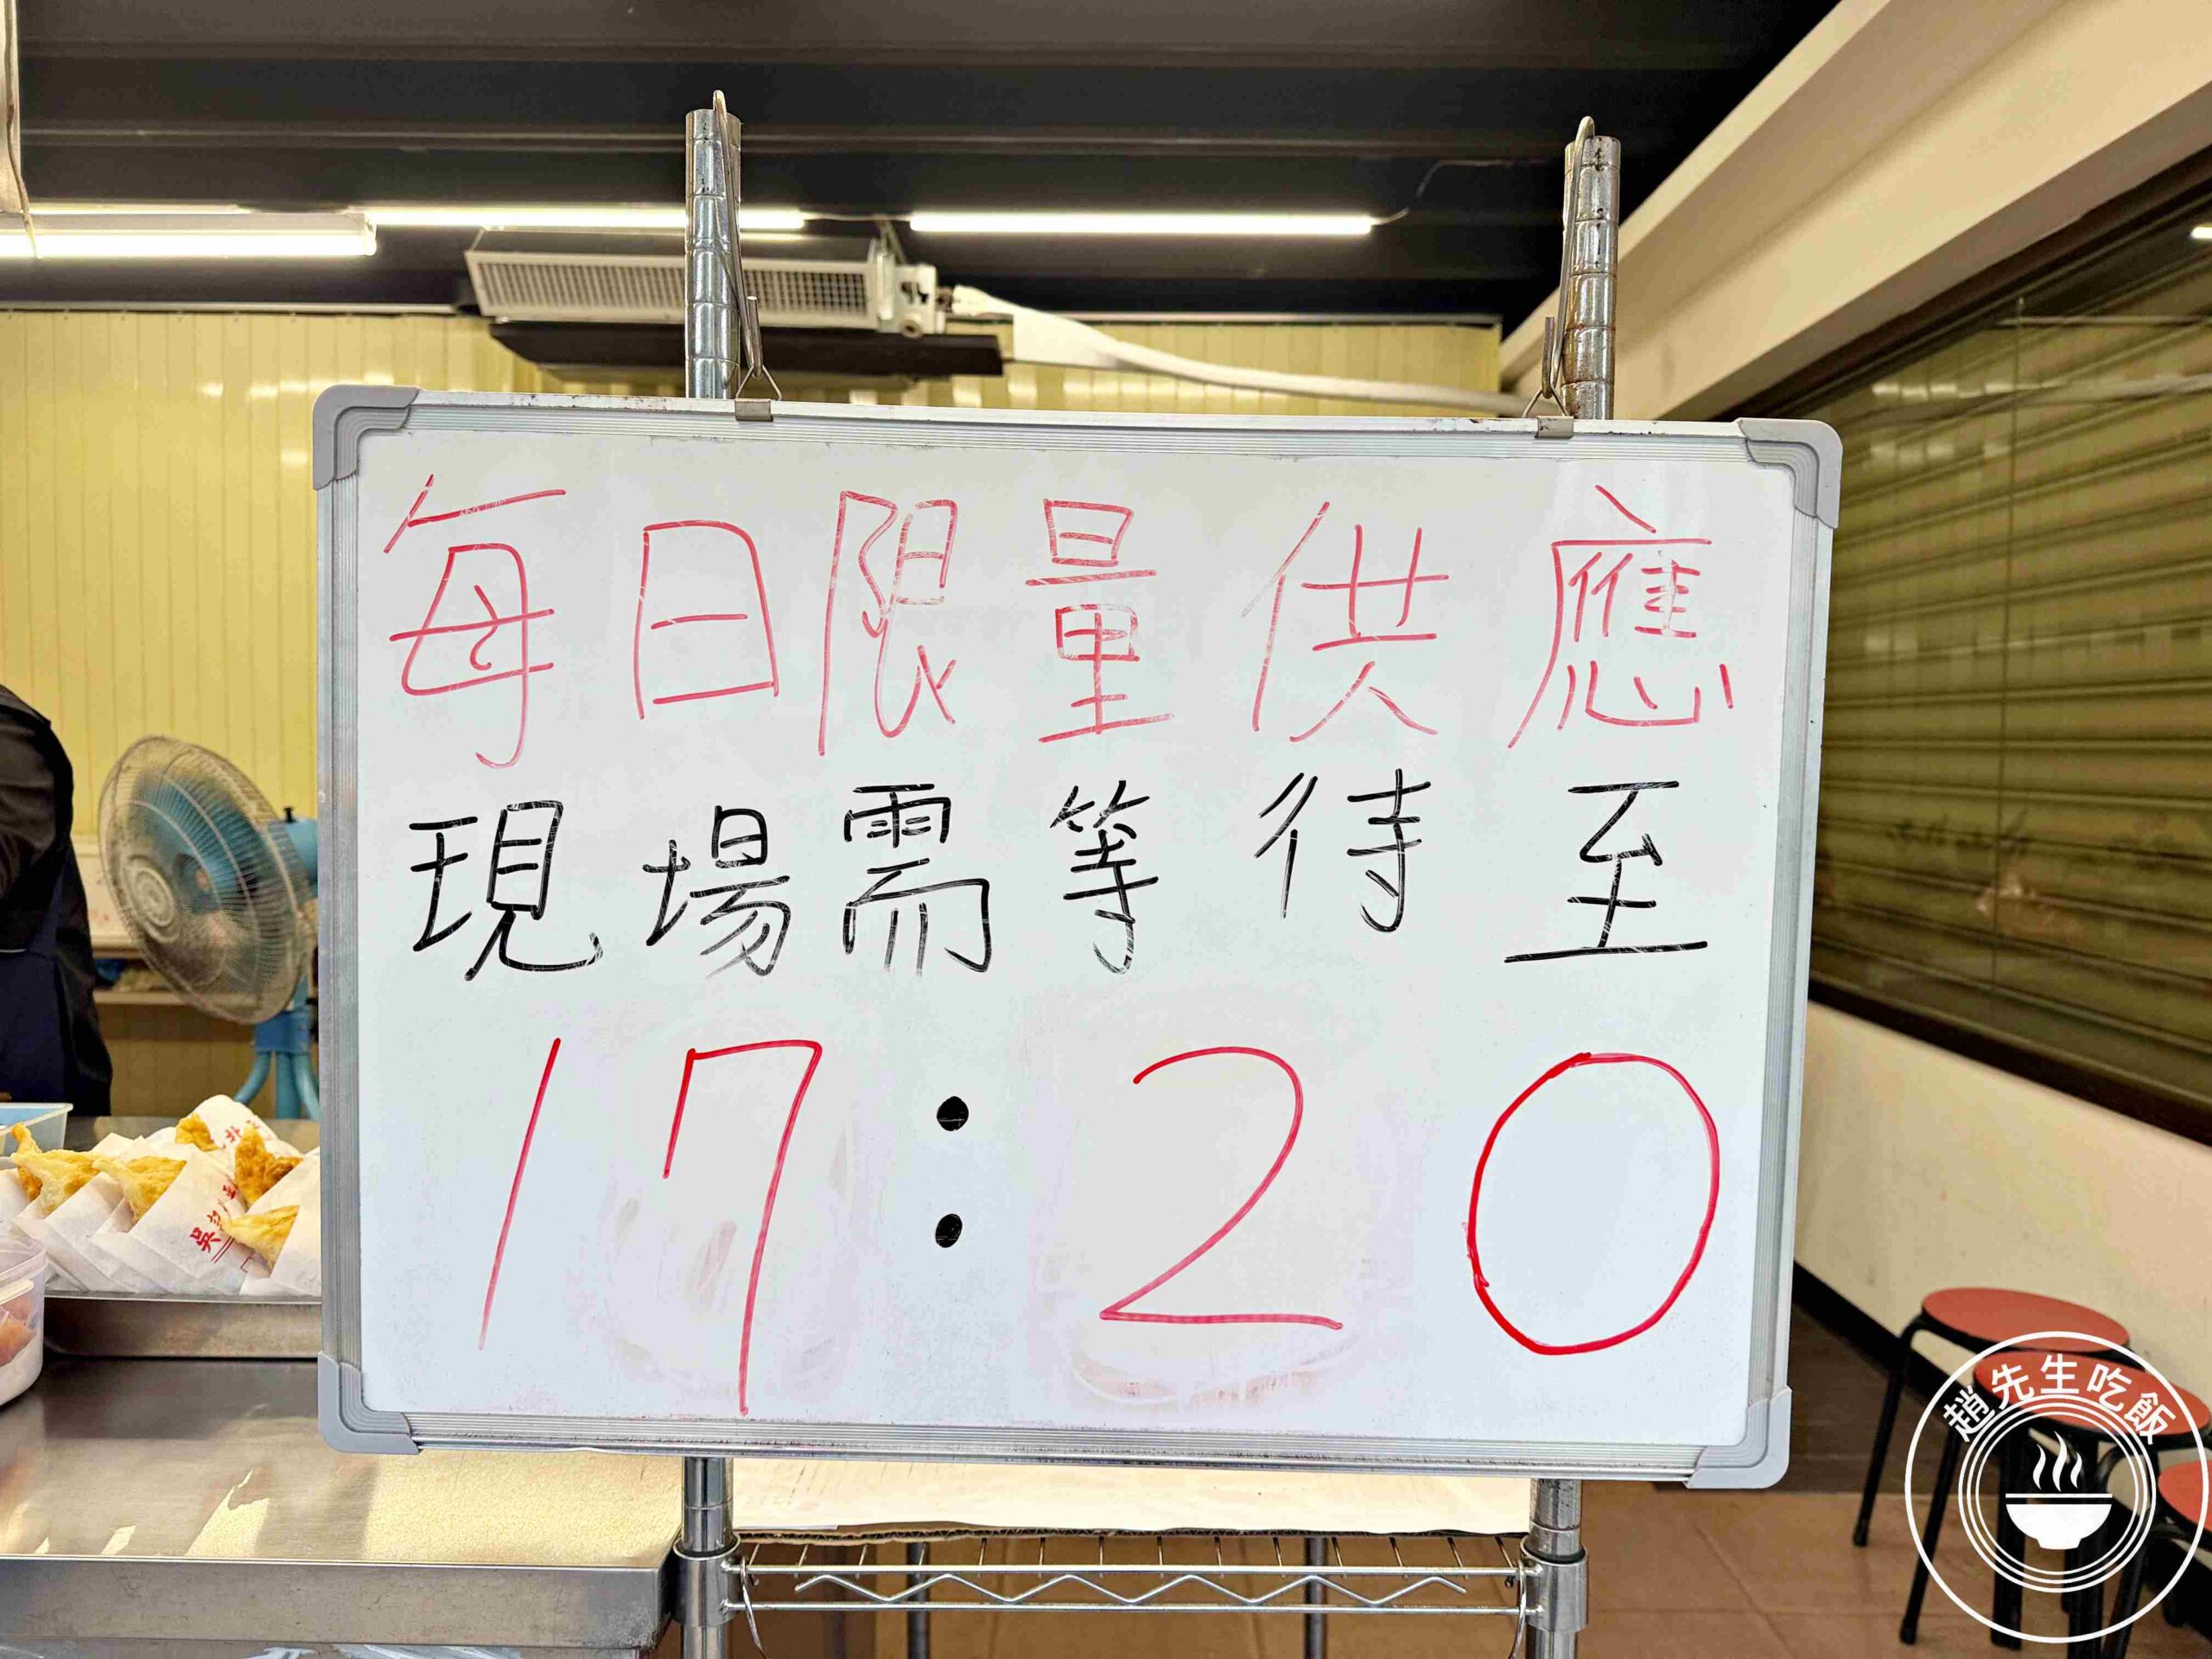 每日限量供應
現場需等待至
17:20
吳
趙先生吃飯